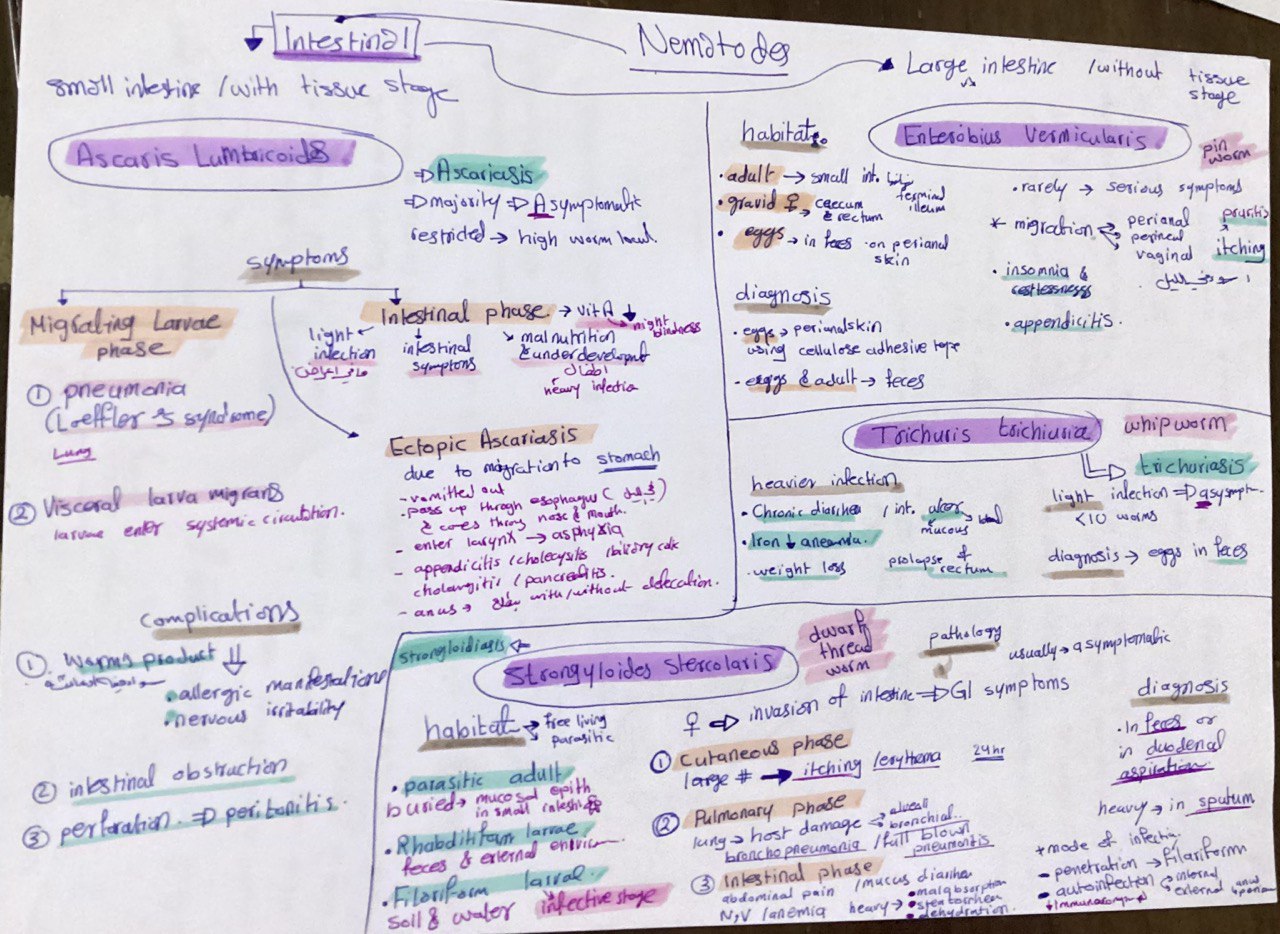 Nematodes
Intestinal
small intestine / with tissue stage
Large intestine / without tissue stage
Ascaris Lumbricoids
⇒ Ascariasis
⇒ majority ⇒ Asymptomatic
restricted → high worm load.
symptoms
Migrating Larvae
phase
① pneumonia
(Loeffler's syndrome)
Lung
② Visceral larva migrans
larvae enter systemic circulation.
Intestinal phase → vit A ↓
→ night blindness
light infection
intestinal symptoms
malnutrition
& underdevelopment
اطفال
heavy infection
Ectopic Ascariasis
due to migration to stomach
- vomitted out
- pass up through esophagus
& comes throug nose & mouth.
- enter larynx → asphyxia
- appendicitis / cholecysitis
cholangitis / pancreatitis.
- anus → with/without defecation.
complications
① Worms product ⇓
• allergic manfestations
• nervous irritability
② intestinal obstruction
③ perforation. ⇒ peritonitis.
Enterobius Vermicularis
pin worm
habitat
• adult → small int.
terminal illeum
• gravid ♀ → caecum
& rectum
• eggs → in feces · on perianal
skin
diagnosis
• eggs → perianal skin
using cellulose adhesive tape
- eggs & adult → feces
• rarely → serious symptoms
* migration → perianal
perineal
vaginal
pruritis
itching
• insomnia &
restlessness
• appendicitis.
Trichuris trichiuria
whipworm
⇒ trichuriasis
heavier infection
• Chronic diarrhea / int. ulcer
mucous blood
• Iron ↓ anemia.
- weight loss
prolapse of
rectum
light infection ⇒ asympt.
<10 worms
diagnosis → eggs in feces
strongloidiasis ⇐
Strongyloides Stercolaris
dwarf
thread
worm
habitat → free living
→ parasitic
• parasitic adult
buried → mucosal epith
in small intestine
• Rhabditiform larvae
feces & external environ
• Filoriform larval
soil & water infective stage
pathology
usually → asymptomatic
♀ ⇒ invasion of intestine ⇒ GI symptoms
① Cutaneous phase
large # → itching / erythema 24hr
② Pulmonary phase
lung → host damage → alveoli
bronchial
bronchopneumonia / full blown
pneumonitis
③ Intestinal phase
abdominal pain / mucus diarrhea
N,V / anemia heavy → • malabsorption
• steatorrhea
• dehydration.
diagnosis
• In feces or
in duodenal
aspiration.
heavy → in sputum
* mode of infection
- penetration → Filariform
- autoinfection → internal
→ external